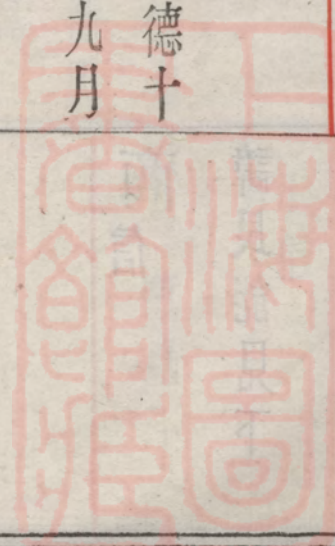 德十
九月
上海圖
書館藏